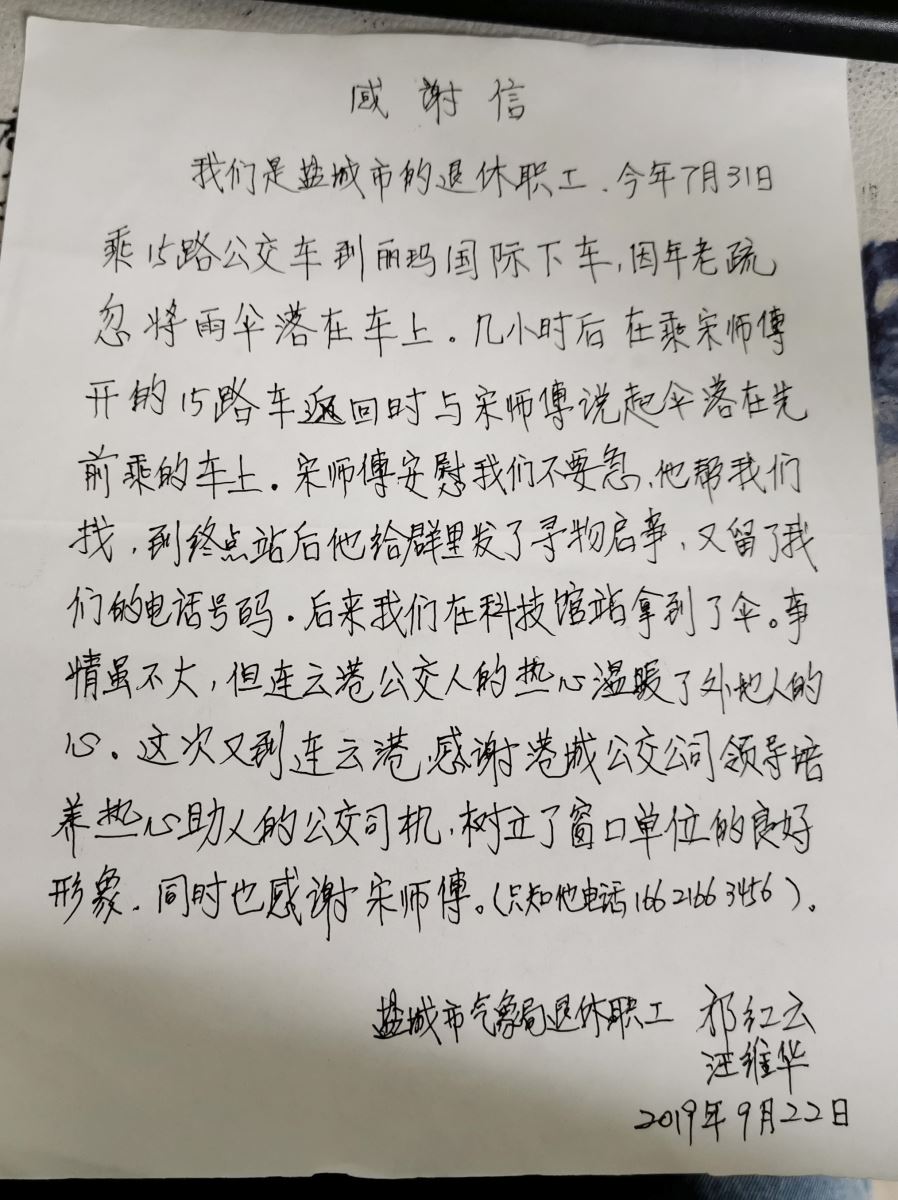 感谢信
我们是盐城市的退休职工.今年7月31日
乘15路公交车到丽玛国际下车,因年老疏
忽将雨伞落在车上。几小时后在乘宋师傅
开的15路车返回时与宋师傅说起伞落在先
前乘的车上。宋师傅安慰我们不要急,他帮我们
找,到终点站后他给群里发了寻物启事,又留了我
们的电话号码.后来我们在科技馆站拿到了伞。事
情虽不大,但连云港公交人的热心温暖了外地人的
心。这次又到连云港,感谢港城公交公司领导培
养热心助人的公交司机,树立了窗口单位的良好
形象.同时也感谢宋师傅。(只知他电话16621663456).
盐城市气象局退休职工 祁红云
汪维华
2019年9月22日